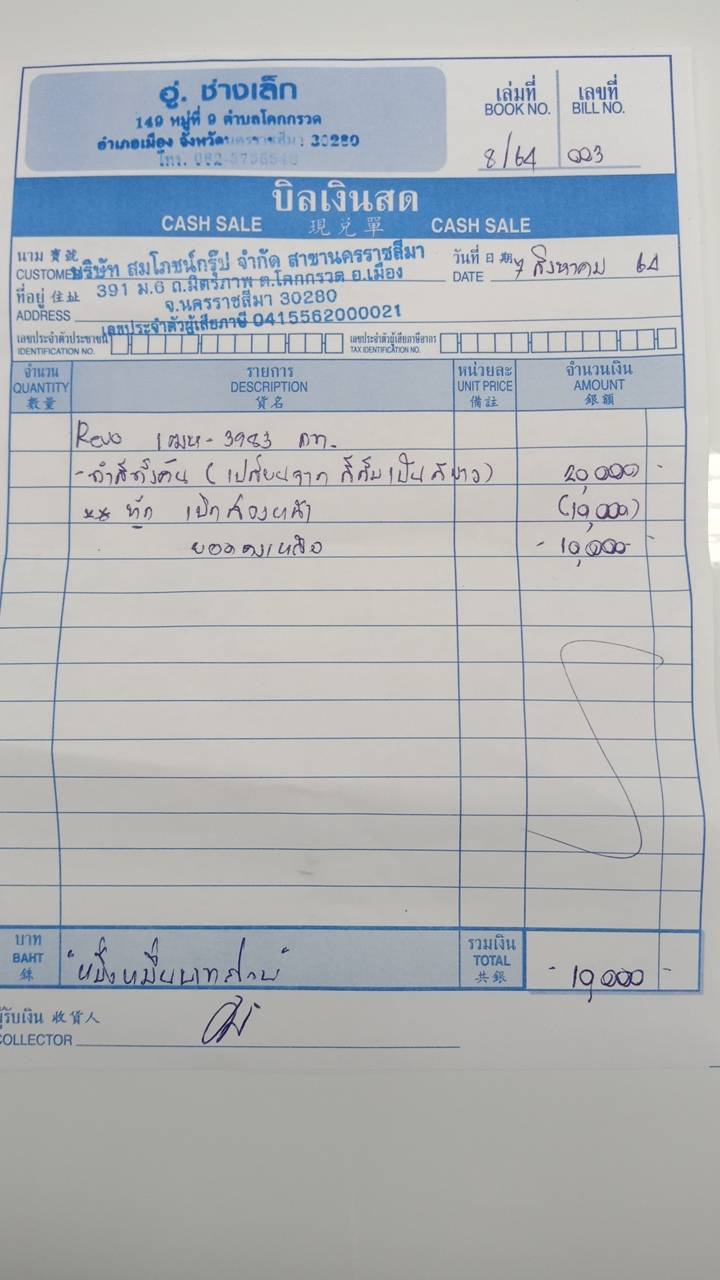 อู่. ช่างเล็ก
149 หมู่ที่ 9 ตำบลโคกกรวด
อำเภอเมือง จังหวัดนครราชสีมา 30280
โทร.
เล่มที่ เลขที่
BOOK NO. BILL NO.
8/64 003
บิลเงินสด
CASH SALE 現兌單 CASH SALE
นาม 寶號
CUSTOMER บริษัท สมโภชน์กรุ๊ป จำกัด สาขานครราชสีมา
วันที่ 日期
DATE 7 สิงหาคม 64
ที่อยู่ 住址 391 ม.6 ถ.มิตรภาพ ต.โคกกรวด อ.เมือง
ADDRESS จ.นครราชสีมา 30280
เลขประจำตัวผู้เสียภาษี 0415562000021
เลขประจำตัวประชาชน เลขประจำตัวผู้เสียภาษีอากร
IDENTIFICATION NO. TAX IDENTIFICATION NO.
จำนวน รายการ หน่วยละ จำนวนเงิน
QUANTITY DESCRIPTION UNIT PRICE AMOUNT
數量 貨名 備註 銀額
Revo 1ฒห - 3983 กท.
- ทำสีทั้งคัน (เปลี่ยนจาก สีส้มเป็นสีขาว) 20,000 -
** หัก เบิกล่วงหน้า (10,000)
ยอดคงเหลือ - 10,000 -
บาท รวมเงิน
BAHT "หนึ่งหมื่นบาทถ้วน" TOTAL - 10,000 -
銖 共銀
ผู้รับเงิน 收貨人
COLLECTOR